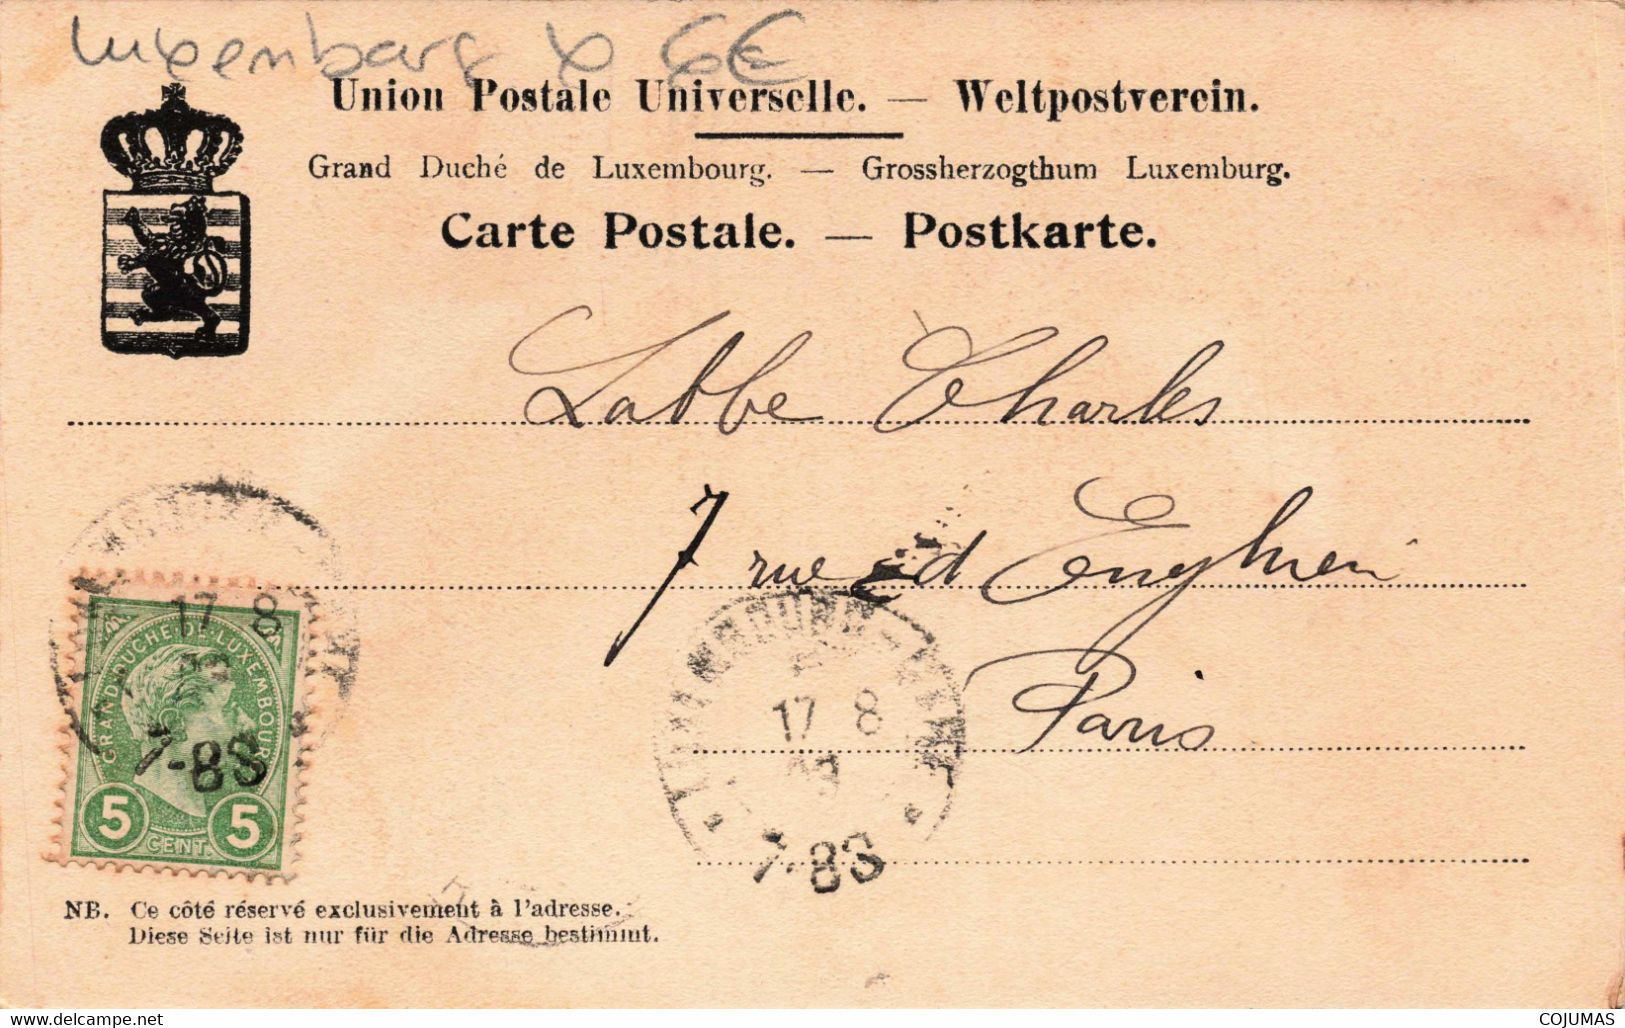 Luxenbarg 6€
Union Postale Universelle. — Weltpostverein.
Grand Duché de Luxembourg. — Grossherzogthum Luxemburg.
Carte Postale. — Postkarte.
Labbe Charles
7 rue d'Enghien
Paris
17 8
GRAND-DUCHÉ-DE-LUXEMBOURG
7-8S
5 CENT. 5
17 8
7-8S
NB. Ce côté réservé exclusivement à l'adresse.
Diese Seite ist nur für die Adresse bestimmt.
COJUMAS